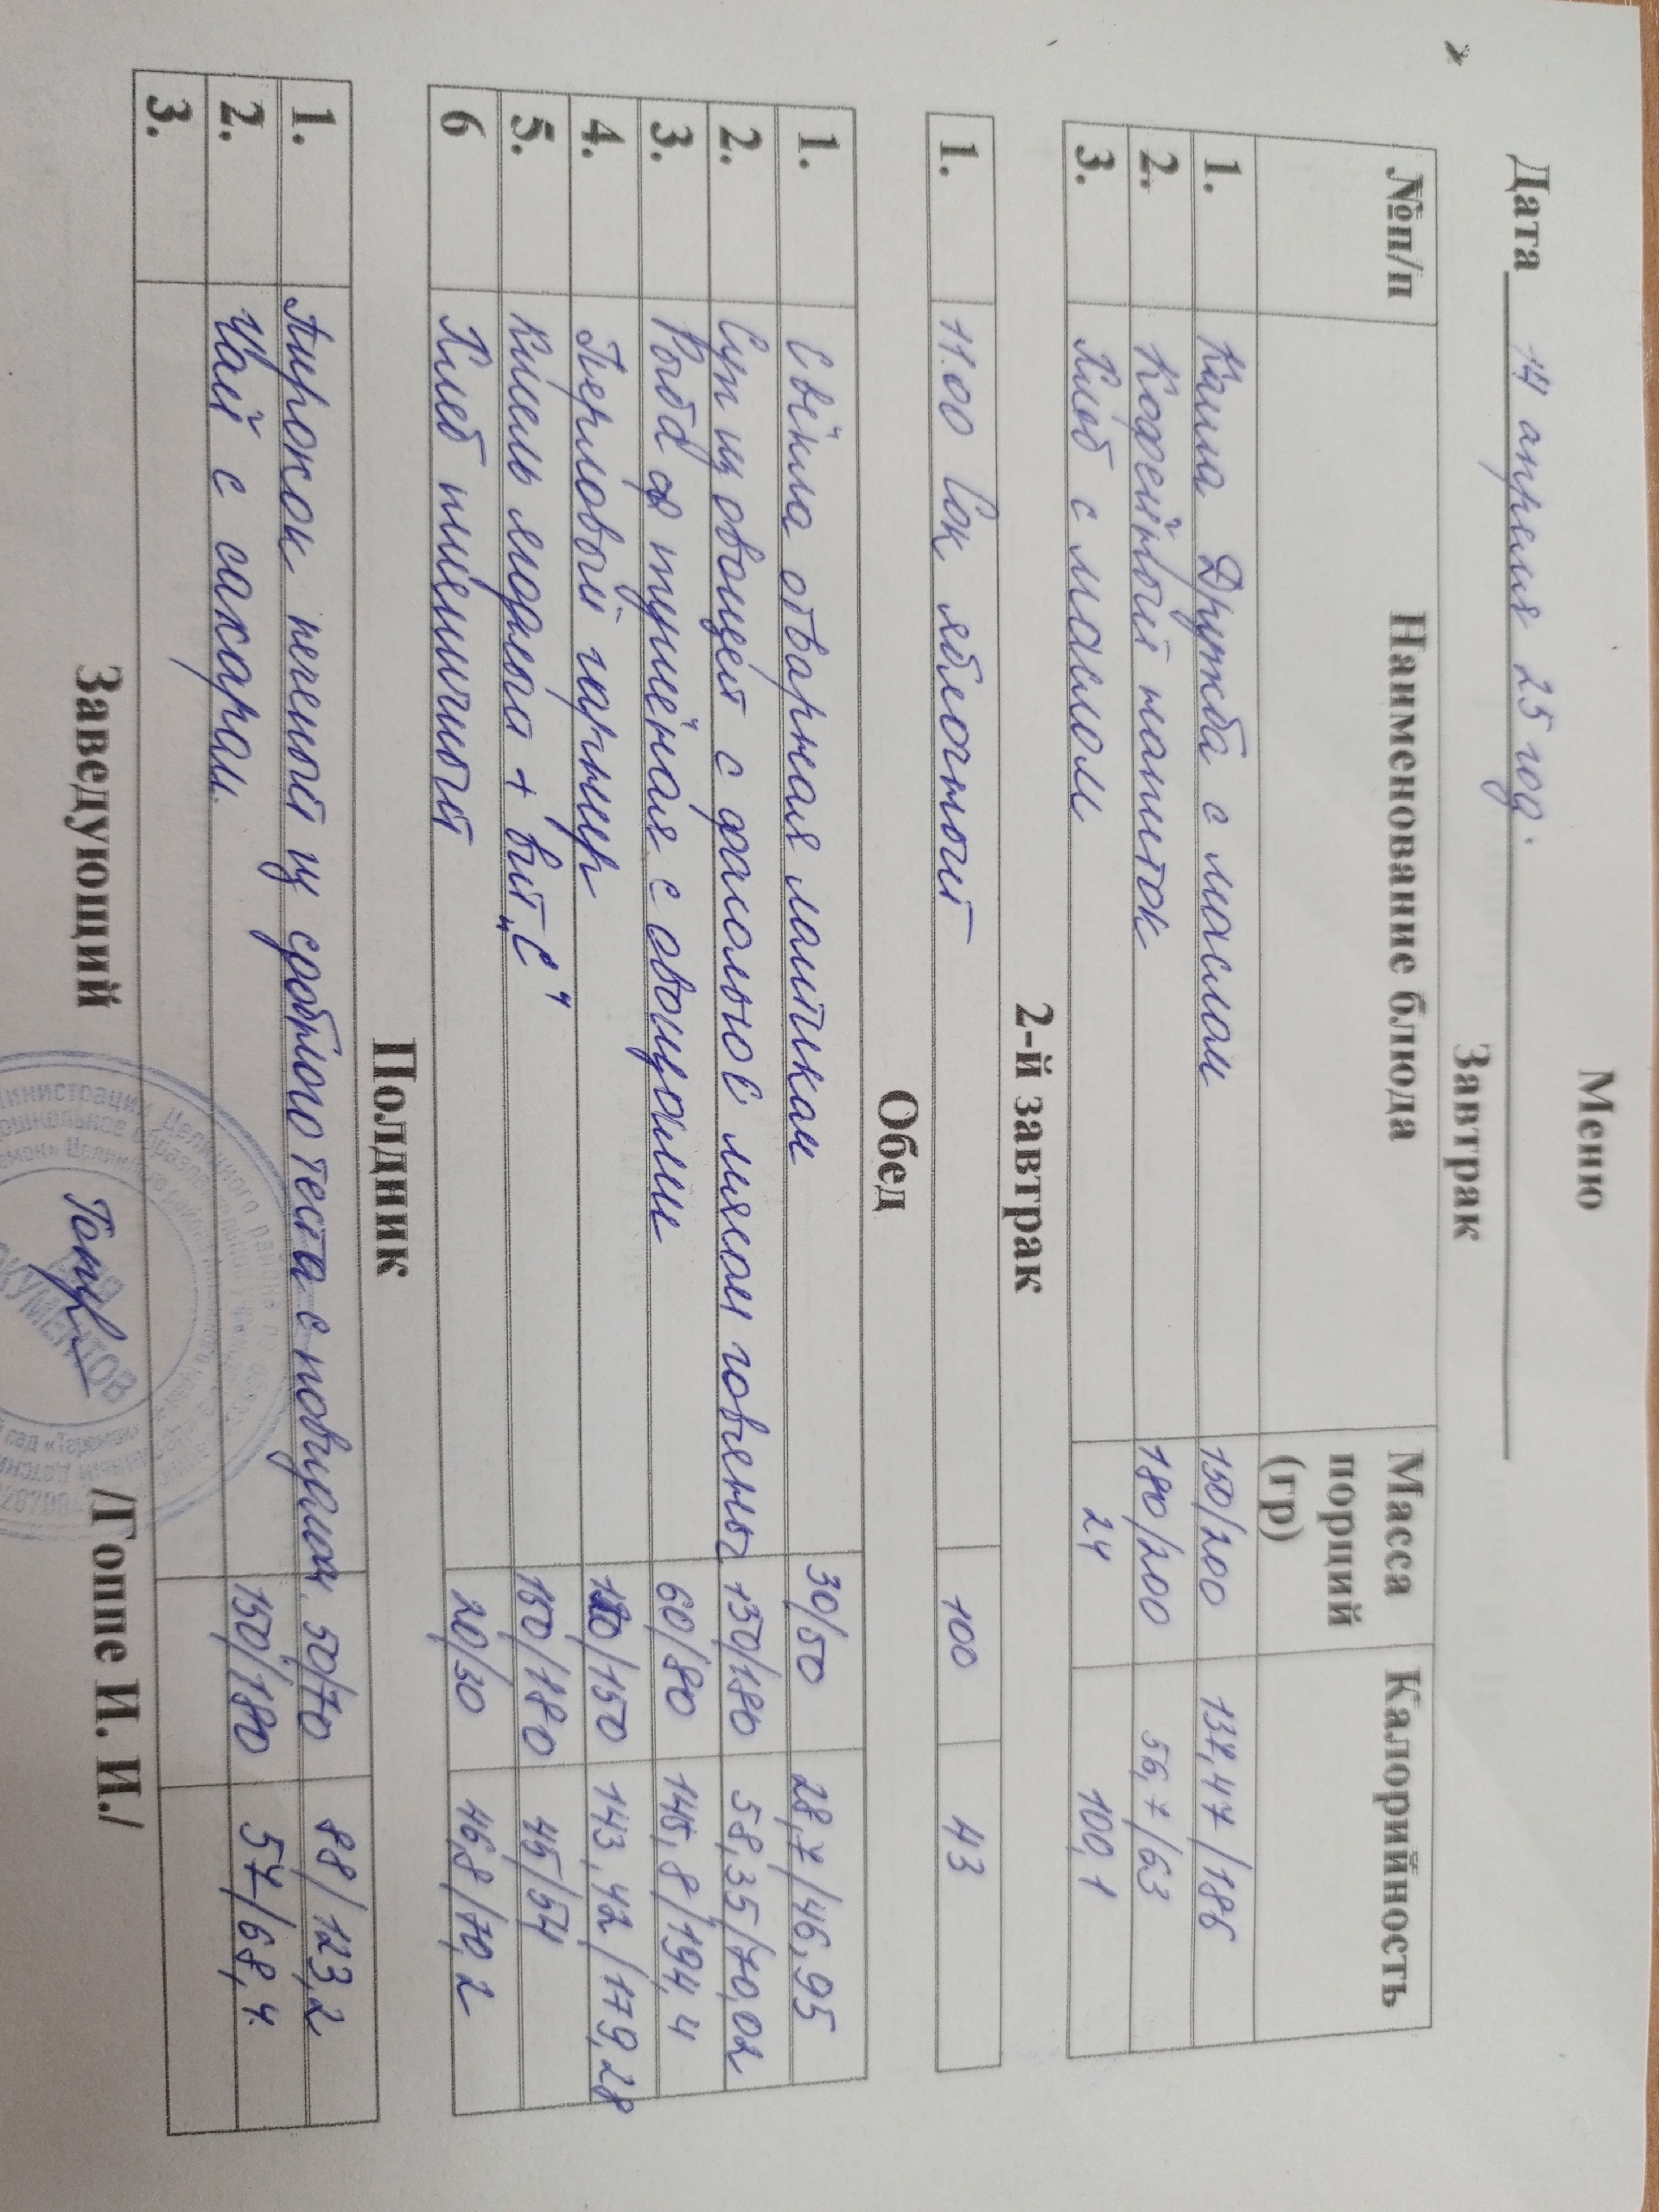 Меню
Дата 14 апреля 25 год.
Завтрак
№п/п Наименование блюда Масса порций (гр) Калорийность
1. Каша Дружба с маслом 150/200 137,47/186
2. Кофейный напиток 180/200 56,7/63
3. Хлеб с маслом 24 100,1
2-й завтрак
1. 11.00 Сок яблочный 100 43
Обед
1. Свёкла отварная ломтиком 30/50 28,7/46,95
2. Суп из овощей с фасолью с мясом говяены 150/180 58,35/70,02
3. Рыба тушёная с овощами 60/80 145,8/194,4
4. Перловый гарнир 120/150 143,42/179,28
5. Кисель ягодный + вит „С" 150/180 45/54
6 Хлеб пшеничный 20/30 46,8/70,2
Полдник
1. Пирожок печеный из сдобного теста с повидлом 50/70 88/123,2
2. Чай с сахаром. 150/180 57/68,4.
3.
Заведующий /Гоппе И. И./
ДОКУМЕНТОВ